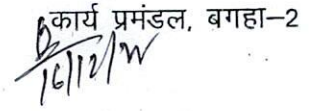 कार्य प्रमंडल, बगहा–2
16/12/